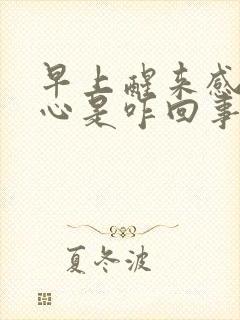 早上醒来感
心是咋回事
夏冬波